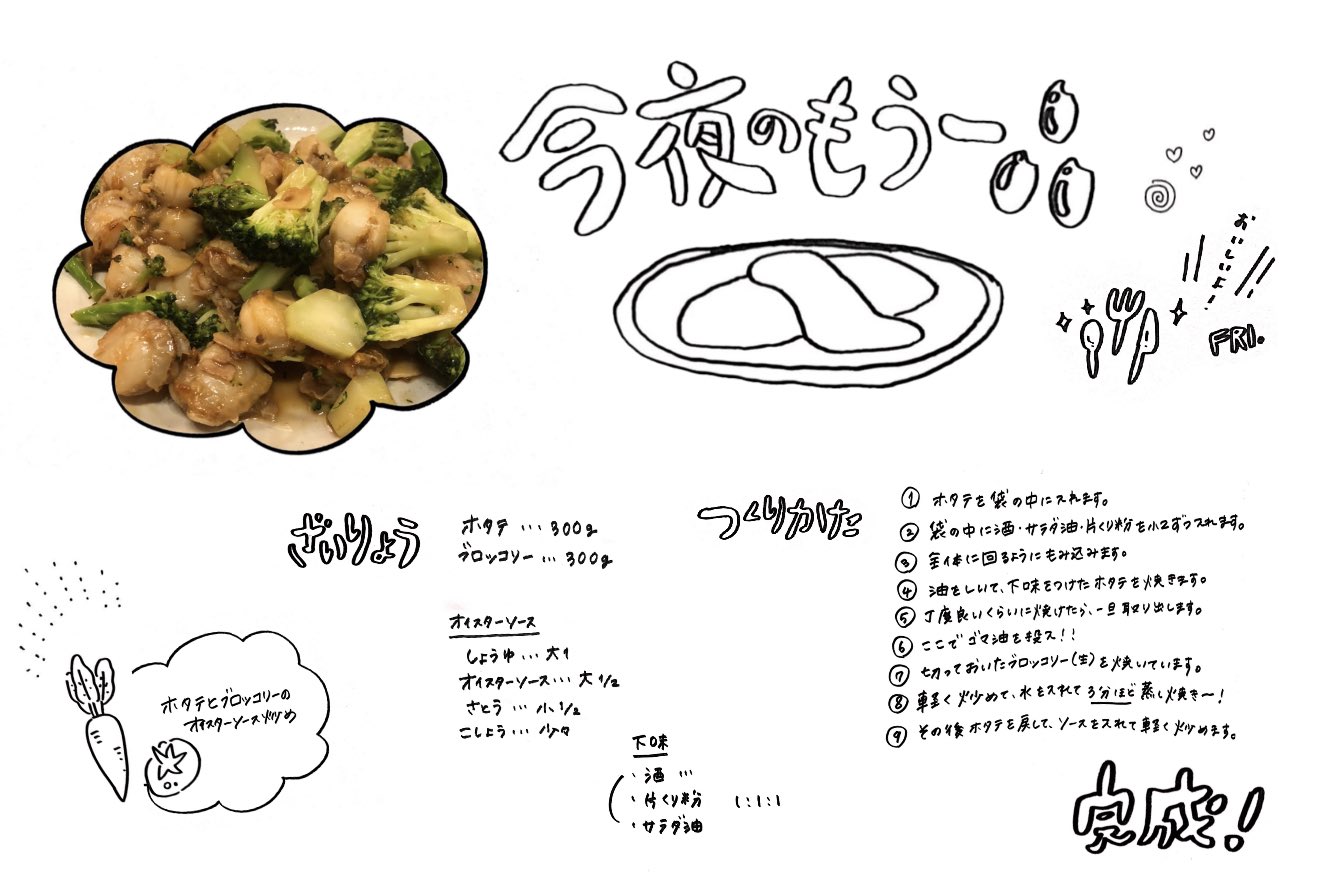 今夜のもう一品
おいしいよ!
FRI.
ざいりょう
ホタテ…300g
ブロッコリー…300g
オイスターソース
しょうゆ…大1
オイスターソース…大1/2
さとう…小1/2
こしょう…少々
下味
・酒…
・片くり粉 1:1:1
・サラダ油
ホタテとブロッコリーの
オイスターソース炒め
つくりかた
① ホタテを袋の中に入れます。
② 袋の中に酒・サラダ油・片くり粉を小2ずつ入れます。
③ 全体に回るようにもみ込みます。
④ 油をしいて、下味をつけたホタテを焼きます。
⑤ 丁度良いくらいに焼けたら、一旦取り出します。
⑥ ここでゴマ油を投入!!
⑦ 切っておいたブロッコリー(生)を焼いています。
⑧ 軽く炒めて、水を入れて3分ほど蒸し焼き〜!
⑨ その後ホタテを戻して、ソースを入れて軽く炒めます。
完成!